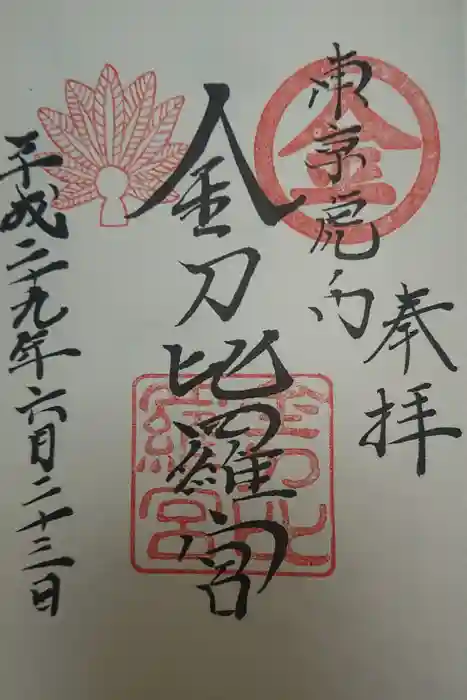 奉拝
東京虎ノ門
金
金刀比羅宮
金刀比羅宮
平成二十九年六月二十三日